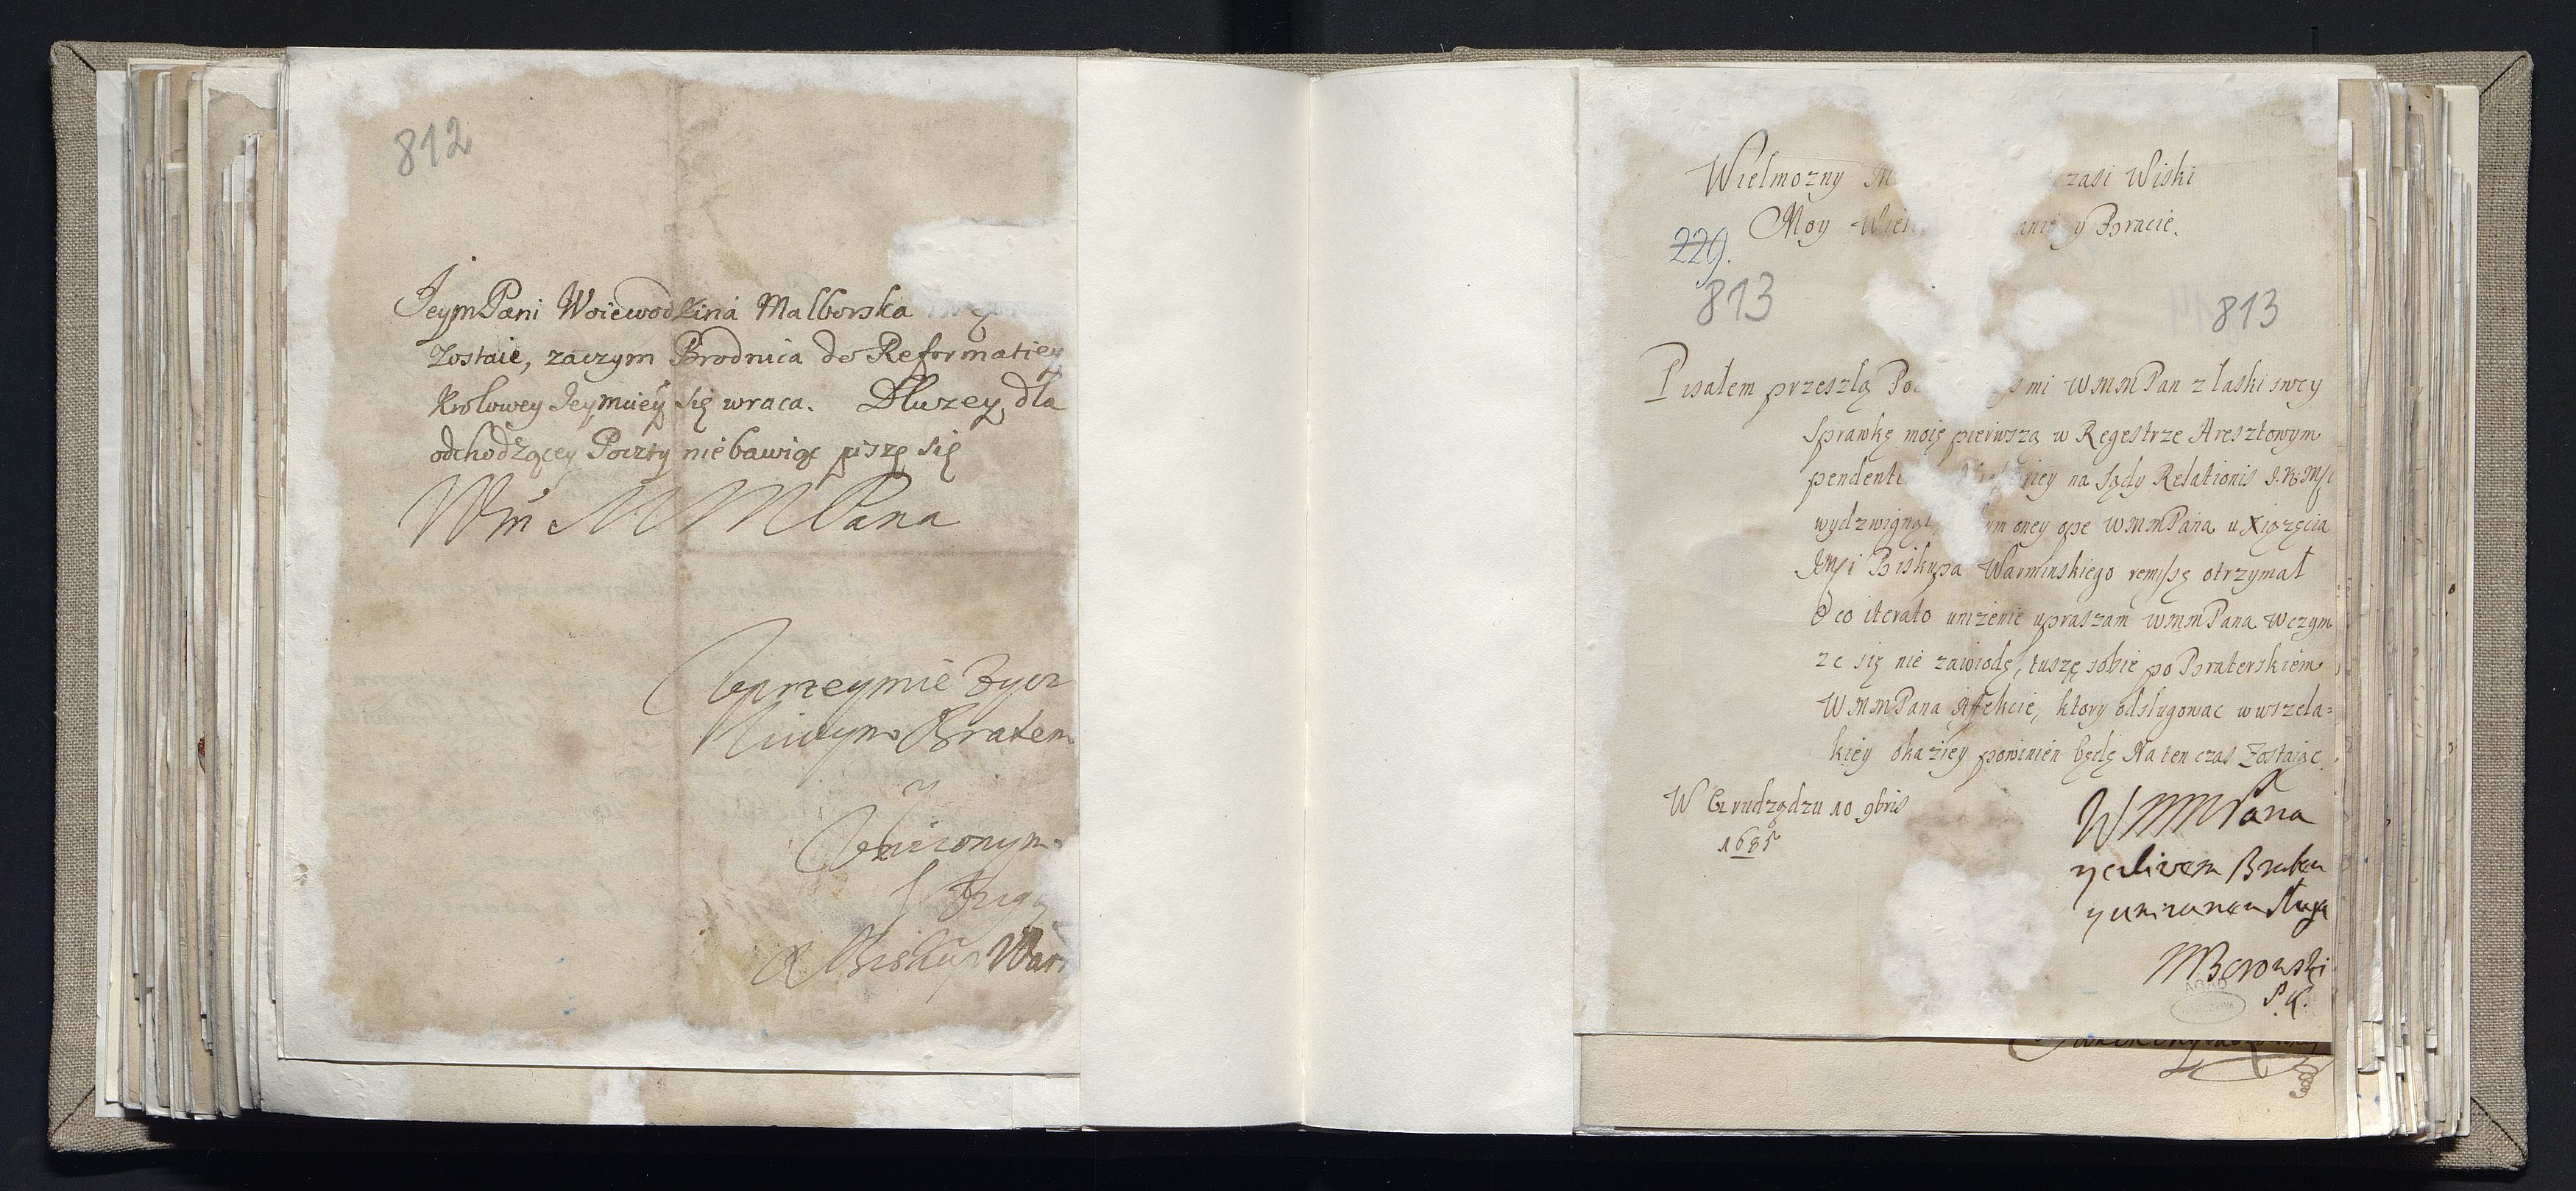 812
JeymPani Woiewodzina Malborska
Zostaie, zaczym Brodnica do Reformatiey
Krolowey Jeymciey się wraca. Dłuzey dla
odchodzącey Poczty niebawiąc piszę się
Wm MMPana
Uprzeymie Zycz
liwym Bratem
y
Unizonym
Sługą
Biskup War
Wielmozny M zasi Wiski
Moy Wiel anie y Bracie.
229.
813
813
Pisałem przeszłą Po mi WMMPan z łaski swey
Sprawkę moię pierwszą w Regestrze Aresztowym
pendent na Sądy Relationis J.K.Mści
wydzwignął ym oney ope WMMPana u Xiązęcia
JMści Biskupa Warminskiego remissę otrzymał
O co iterato unizenie upraszam WMMPana Wczym
ze się nie zawiodę, tuszę sobie po Braterskiem
WMMPana Affekcie, ktory odsługowac w wszela=
kiey okaziey powinien będę Na ten czas Zostaiąc
W Grudządzu 10 9bris
1685
WMMPana
y Bratem
y unizonem sługą
P.K.